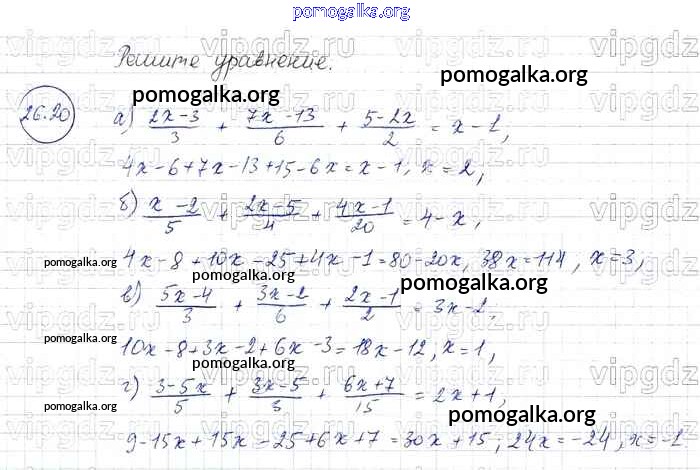 pomogalka.org
Решите уравнение.
26.20
а) (2x-3)/3 + (7x-13)/6 + (5-2x)/2 = x-1,
4x-6+7x-13+15-6x=x-1, x=2,
б) (x-2)/5 + (2x-5)/4 + (4x-1)/20 = 4-x,
4x-8+10x-25+4x-1=80-20x, 38x=114, x=3,
в) (5x-4)/3 + (3x-2)/6 + (2x-1)/2 = 3x-2,
10x-8+3x-2+6x-3=18x-12, x=1,
г) (3-5x)/5 + (3x-5)/3 + (6x+7)/15 = 2x+1,
9-15x+15x-25+6x+7=30x+15; 24x=-24, x=-1
pomogalka.org
pomogalka.org
pomogalka.org
pomogalka.org
pomogalka.org
pomogalka.org
pomogalka.org
pomogalka.org
pomogalka.org
pomogalka.org
vipgdz.ru